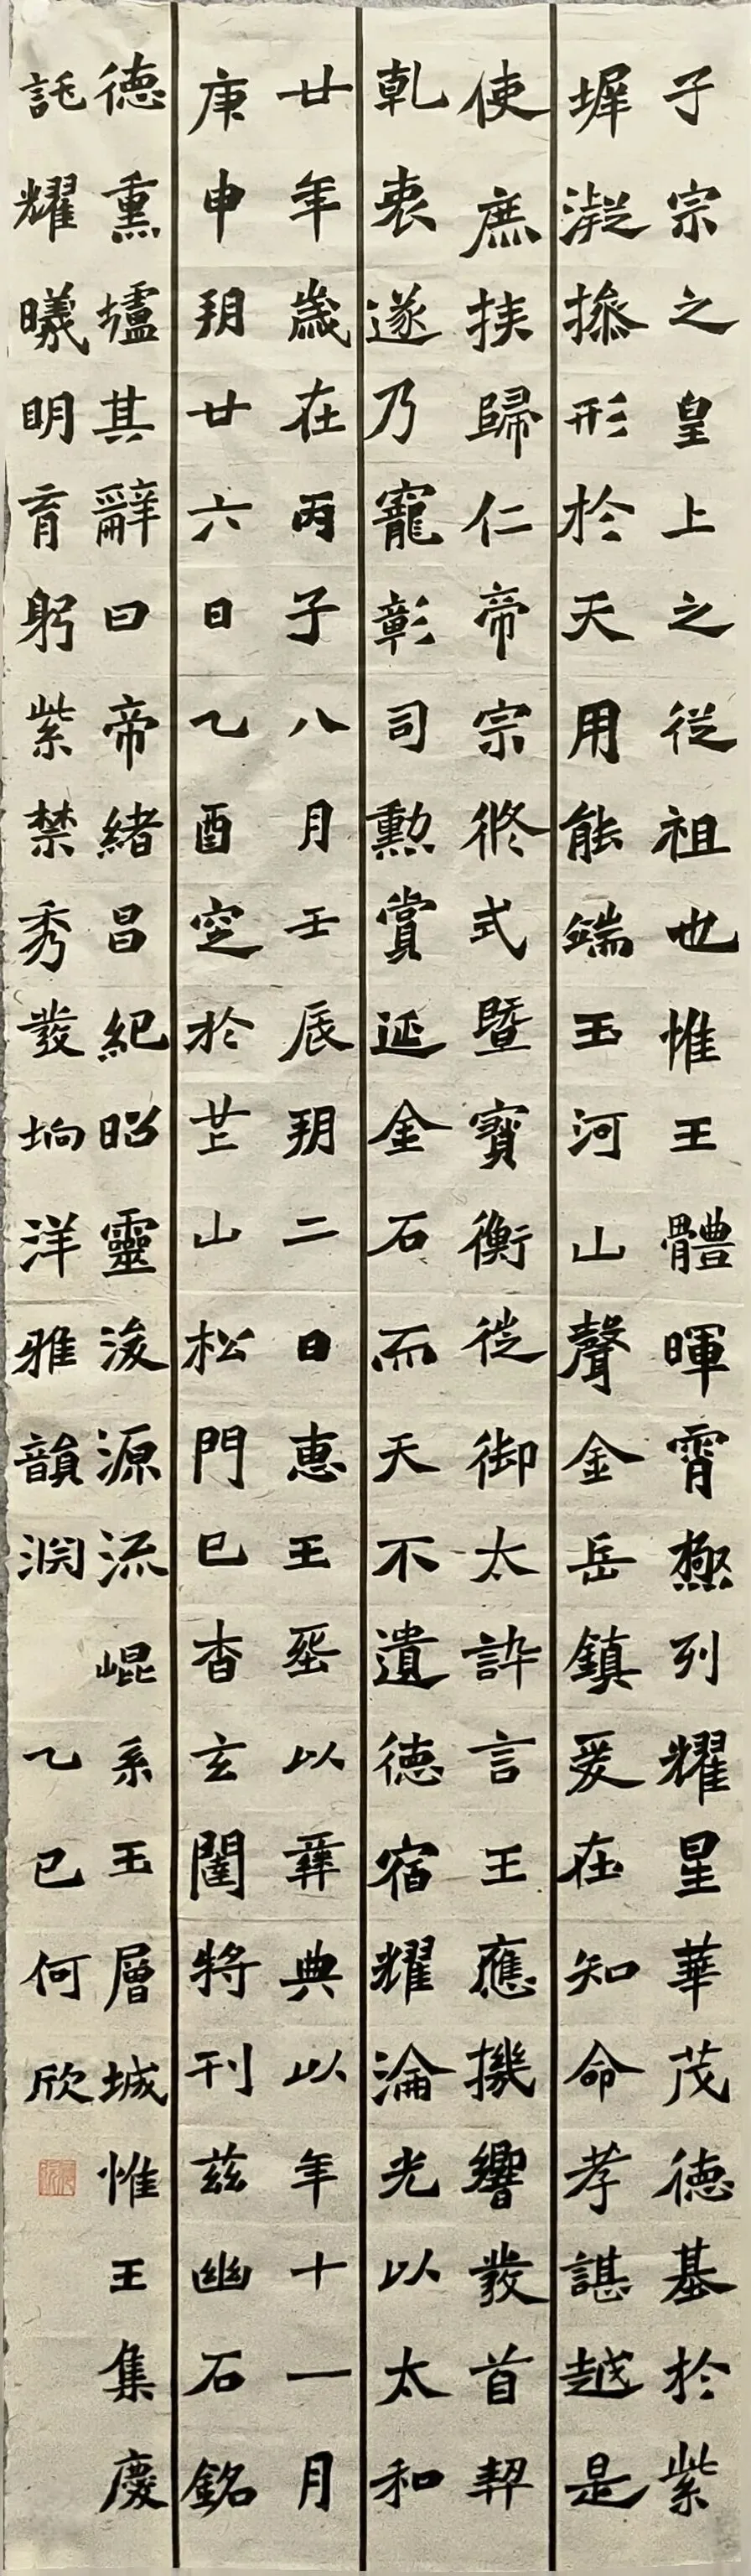 子宗之皇上之從祖也惟王體暉霄極列耀星華茂德基於紫
墀凝操形於天用能端玉河山聲金岳鎮爰在知命孝諶越是
使庶族歸仁帝宗攸式暨寶衡徙御太訊言王應機響發首契
乾衷遂乃寵彰司勳賞延金石而天不遺德宿耀淪光以太和
廿年歲在丙子八月壬辰朔二日惠王葬以彝典以年十一月
庚申朔廿六日乙酉窆於芒山松門已杳玄闥將刊茲幽石銘
德熏壚其辭曰帝緒昌紀昭靈浚源流崐系玉層城惟王集慶
託耀曦明育躬紫禁秀發坰洋雅韻淵 乙巳何欣